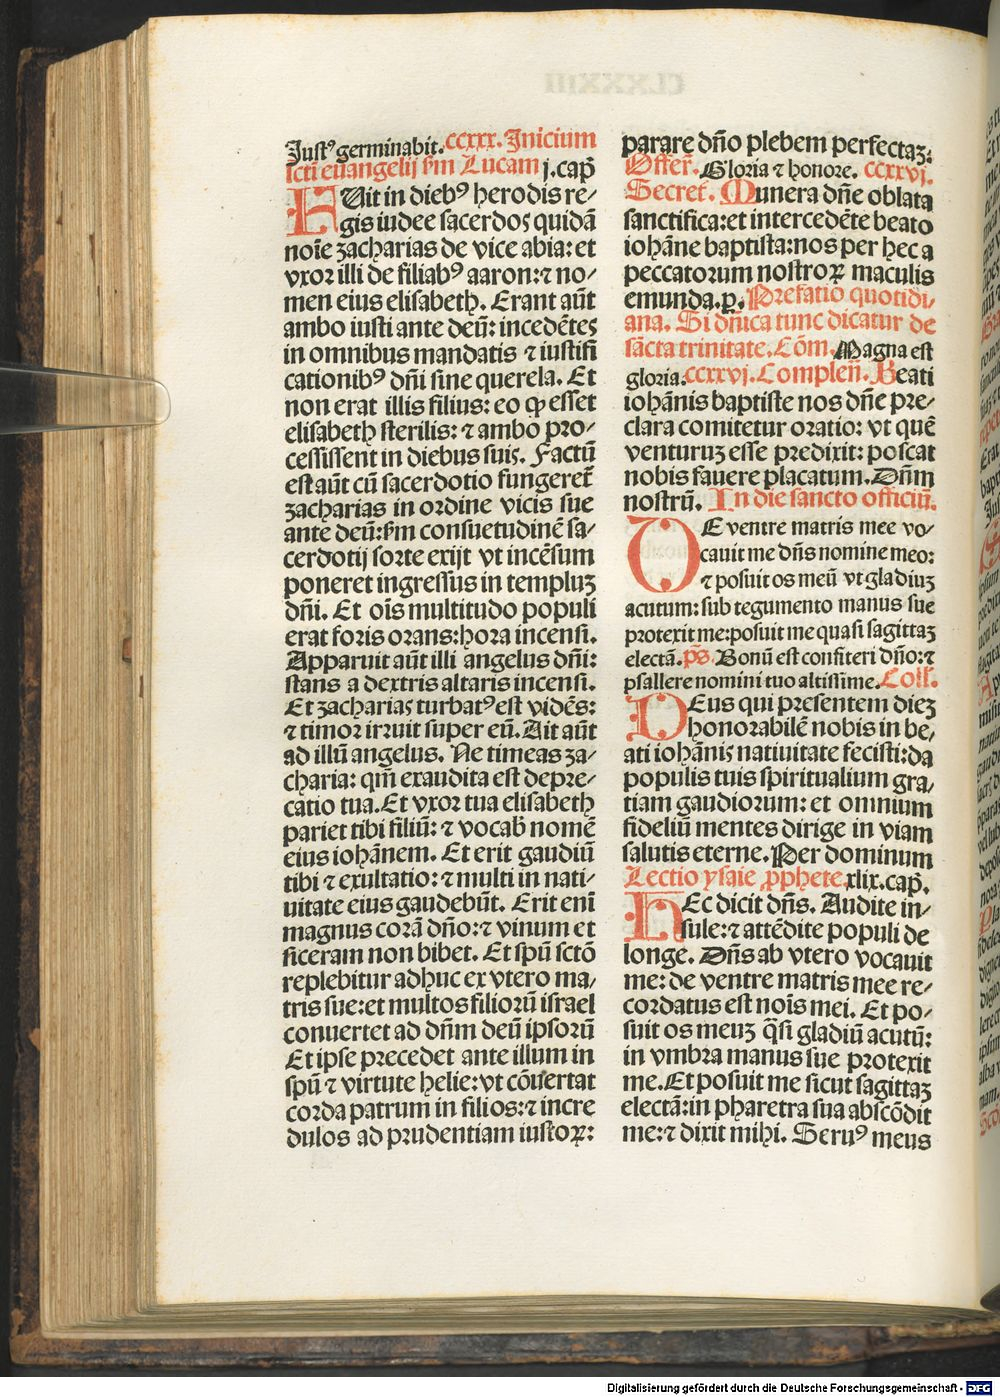 Iustꝰ germinabit. ccxxx. Inicium
scti euangelij ẜm Lucam j. cap̄
FUit in diebꝰ herodis re⸗
gis iudee sacerdos quidā
noīe zacharias de vice abia: et
vxor illi de filiabꝰ aaron: ⁊ no⸗
men eius elisabeth. Erant aūt
ambo iusti ante deū: incedētes
in omnibus mandatis ⁊ iustifi
cationibꝰ dn̄i sine querela. Et
non erat illis filius: eo ꝙ esset
elisabeth sterilis: ⁊ ambo pro⸗
cessissent in diebus suis. Factū
est aūt cū sacerdotio fungeret̄
zacharias in ordine vicis sue
ante deū: ẜm consuetudinē sa⸗
cerdotij sorte exijt vt incēsum
poneret ingressus in templuꝫ
dn̄i. Et oīs multitudo populi
erat foris orans: hora incensi.
Apparuit aūt illi angelus dn̄i:
stans a dextris altaris incensi.
Et zacharias turbatꝰ est vidēs:
⁊ timor irruit super eū. Ait aūt
ad illū angelus. Ne timeas za⸗
charia: qm̄ exaudita est depre⸗
catio tua. Et vxor tua elisabeth
pariet tibi filiū: ⁊ vocab̄ nomē
eius iohānem. Et erit gaudiū
tibi ⁊ exultatio: ⁊ multi in nati⸗
uitate eius gaudebūt. Erit enī
magnus corā dn̄o: ⁊ vinum et
siceram non bibet. Et spū sctō
replebitur adhuc ex vtero ma⸗
tris sue: et multos filiorū israel
conuertet ad dn̄m deū ipsorū
Et ipse precedet ante illum in
spū ⁊ virtute helie: vt cōuertat
corda patrum in filios: ⁊ incre
dulos ad prudentiam iustoꝝ:
parare dn̄o plebem perfectaꝫ:
Offer̄. Gloria ⁊ honore. ccxxvj.
Secret̄. Munera dn̄e oblata
sanctifica: et intercedēte beato
iohāne baptista: nos per hec a
peccatorum nostroꝝ maculis
emunda. ꝑ. Prefatio quotidi⸗
ana. Si dn̄ica tunc dicatur de
sācta trinitate. Cōm. Magna est
gloria. ccxxvj. Complen̄. Beati
iohānis baptiste nos dn̄e pre⸗
clara comitetur oratio: vt quē
venturuꝫ esse predixit: poscat
nobis fauere placatum. Dn̄m
nostrū. In die sancto officiū.
DE ventre matris mee vo⸗
cauit me dn̄s nomine meo:
⁊ posuit os meū vt gladiuꝫ
acutum: sub tegumento manus sue
protexit me: posuit me quasi sagittaꝫ
electā. ps̄. Bonū est confiteri dn̄o: ⁊
psallere nomini tuo altissime. Coll̄.
DEus qui presentem dieꝫ
honorabilē nobis in be⸗
ati iohānis natiuitate fecisti: da
populis tuis spiritualium gra⸗
tiam gaudiorum: et omnium
fideliū mentes dirige in viam
salutis eterne. Per dominum
Lectio ysaie ꝓphete. xlix. cap̄.
HEc dicit dn̄s. Audite in⸗
sule: ⁊ attēdite populi de
longe. Dn̄s ab vtero vocauit
me: de ventre matris mee re⸗
cordatus est noīs mei. Et po⸗
suit os meuꝫ q̄si gladiū acutū:
in vmbra manus sue protexit
me. Et posuit me sicut sagittaꝫ
electā: in pharetra sua abscōdit
me: ⁊ dixit mihi. Seruꝰ meus
Digitalisierung gefördert durch die Deutsche Forschungsgemeinschaft - DFG